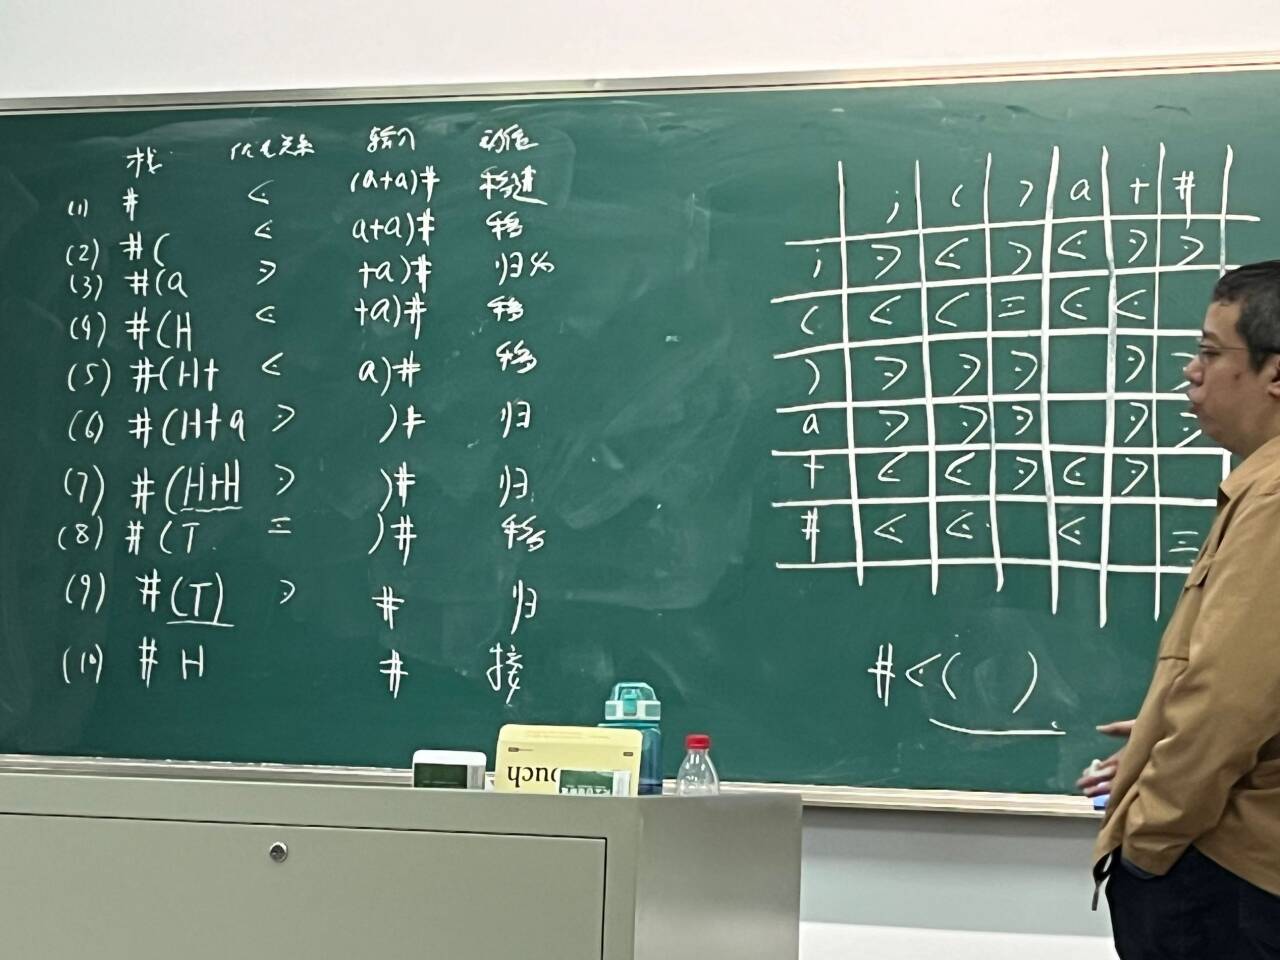 栈 优先关系 输入 动作
(1) # ⋖ (a+a)# 移进
(2) #( ⋖ a+a)# 移
(3) #(a ⋗ +a)# 归约
(4) #(H ⋖ +a)# 移
(5) #(H+ ⋖ a)# 移
(6) #(H+a ⋗ )# 归
(7) #(H+H ⋗ )# 归
(8) #(T ≡ )# 移
(9) #(T) ⋗ # 归
(10) # H # 接
; ( ) a + #
; ⋗ ⋖ ⋗ ⋖ ⋗ ⋗
( ⋖ ⋖ ≡ ⋖ ⋖
) ⋗ ⋗ ⋗ ⋗ ⋗
a ⋗ ⋗ ⋗ ⋗ ⋗
+ ⋖ ⋖ ⋗ ⋖ ⋗
# ⋖ ⋖ ⋖ ≡
# ⋖ ( )
ouch